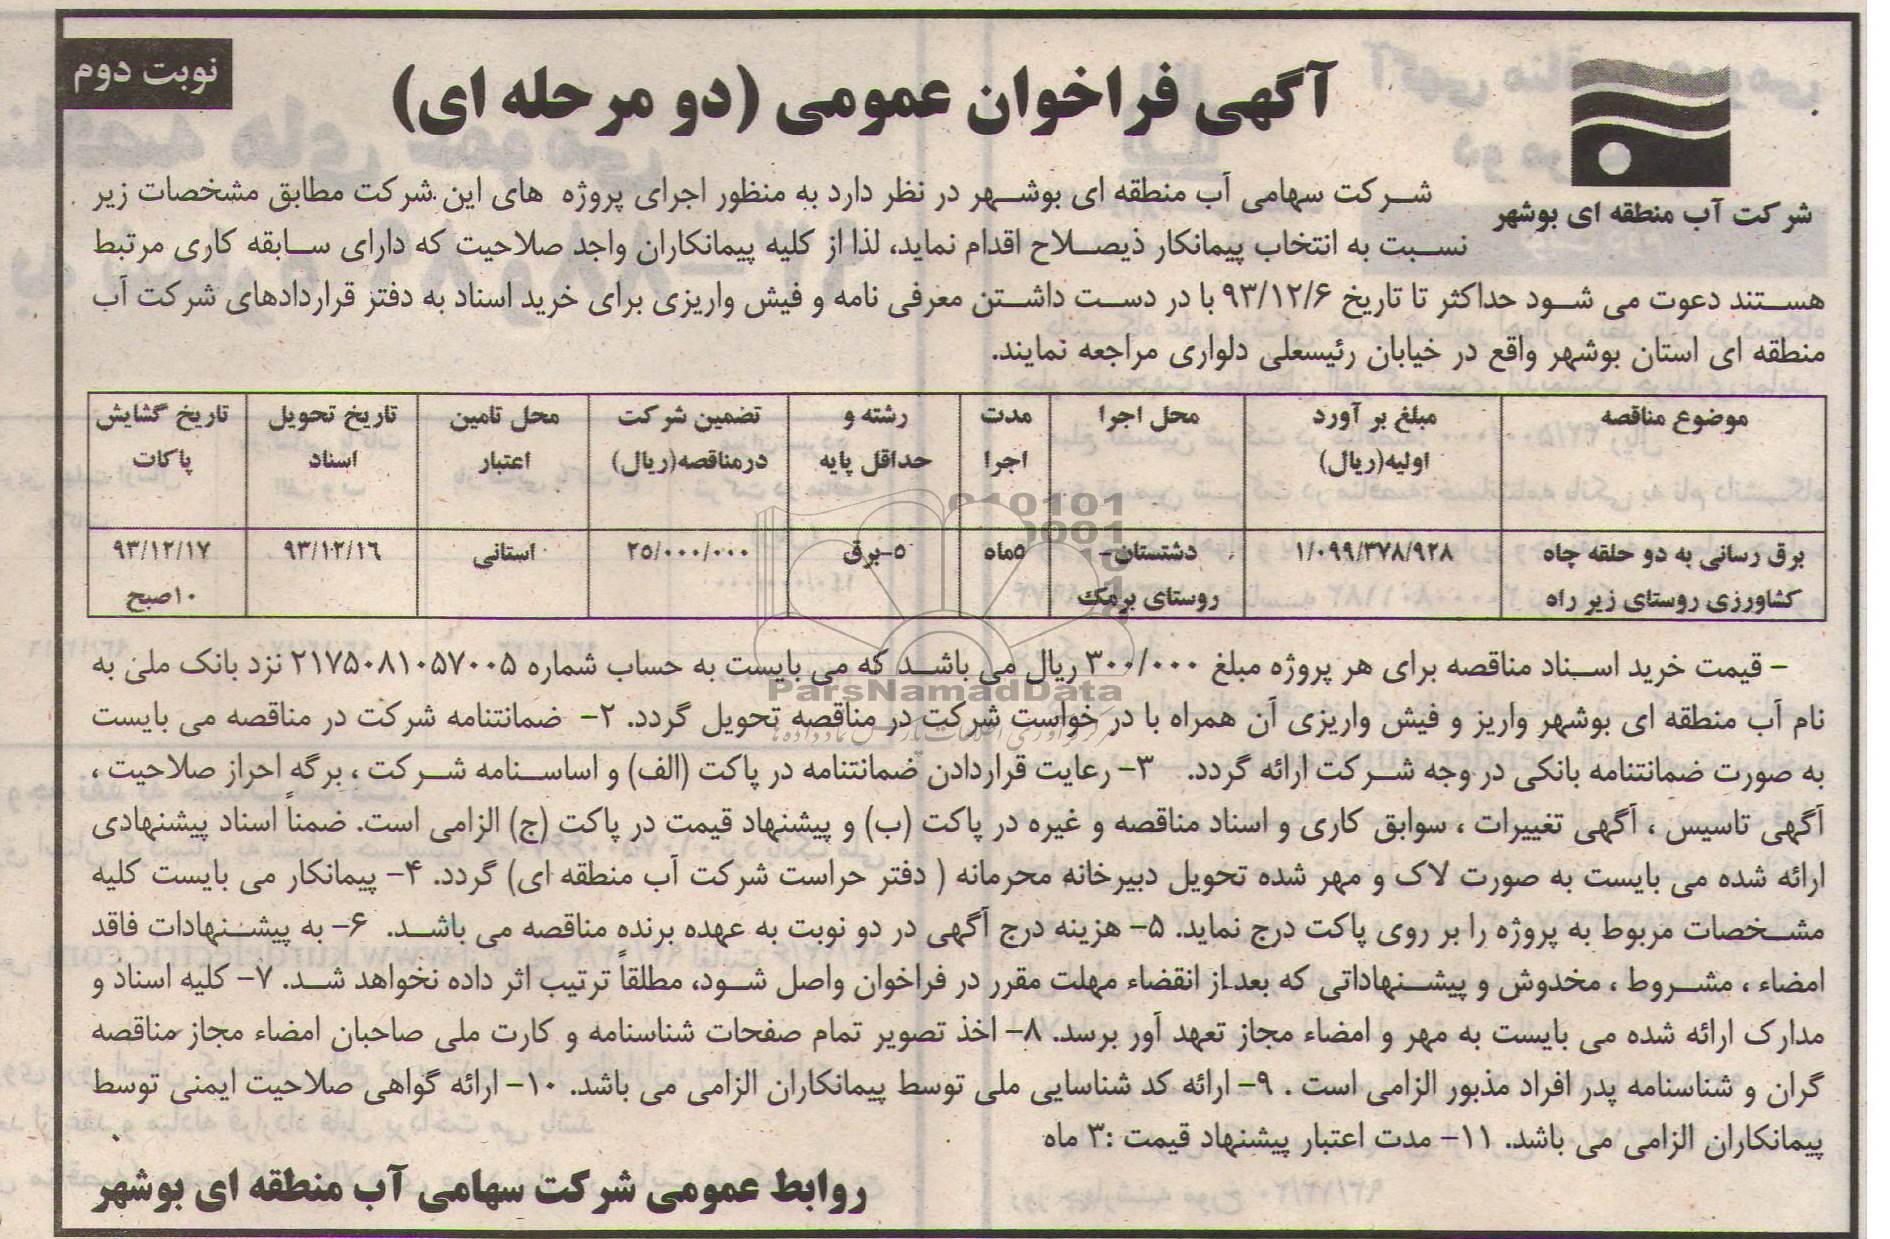 نوبت دوم
آگهی فراخوان عمومی (دو مرحله ای)
شرکت آب منطقه ای بوشهر
شرکت سهامی آب منطقه ای بوشهر در نظر دارد به منظور اجرای پروژه های این شرکت مطابق مشخصات زیر
نسبت به انتخاب پیمانکار ذیصلاح اقدام نماید، لذا از کلیه پیمانکاران واجد صلاحیت که دارای سابقه کاری مرتبط
هستند دعوت می شود حداکثر تا تاریخ ۹۳/۱۲/۶ با در دست داشتن معرفی نامه و فیش واریزی برای خرید اسناد به دفتر قراردادهای شرکت آب
منطقه ای استان بوشهر واقع در خیابان رئیسعلی دلواری مراجعه نمایند.
موضوع مناقصه | مبلغ بر آورد اولیه(ریال) | محل اجرا | مدت اجرا | رشته و حداقل پایه | تضمین شرکت درمناقصه(ریال) | محل تامین اعتبار | تاریخ تحویل اسناد | تاریخ گشایش پاکات
برق رسانی به دو حلقه چاه کشاورزی روستای زیر راه | ۱/۰۹۹/۳۷۸/۹۲۸ | دشتستان- روستای برمک | ۵ماه | ۵-برق | ۲۵/۰۰۰/۰۰۰ | استانی | ۹۳/۱۲/۱۶ | ۹۳/۱۲/۱۷ ۱۰صبح
- قیمت خرید اسناد مناقصه برای هر پروژه مبلغ ۳۰۰/۰۰۰ ریال می باشد که می بایست به حساب شماره ۲۱۷۵۰۸۱۰۵۷۰۰۵ نزد بانک ملی به
نام آب منطقه ای بوشهر واریز و فیش واریزی آن همراه با در خواست شرکت در مناقصه تحویل گردد. ۲- ضمانتنامه شرکت در مناقصه می بایست
به صورت ضمانتنامه بانکی در وجه شرکت ارائه گردد. ۳- رعایت قراردادن ضمانتنامه در پاکت (الف) و اساسنامه شرکت ، برگه احراز صلاحیت ،
آگهی تاسیس ، آگهی تغییرات ، سوابق کاری و اسناد مناقصه و غیره در پاکت (ب) و پیشنهاد قیمت در پاکت (ج) الزامی است. ضمناً اسناد پیشنهادی
ارائه شده می بایست به صورت لاک و مهر شده تحویل دبیرخانه محرمانه ( دفتر حراست شرکت آب منطقه ای) گردد. ۴- پیمانکار می بایست کلیه
مشخصات مربوط به پروژه را بر روی پاکت درج نماید. ۵- هزینه درج آگهی در دو نوبت به عهده برنده مناقصه می باشد. ۶- به پیشنهادات فاقد
امضاء ، مشروط ، مخدوش و پیشنهاداتی که بعد از انقضاء مهلت مقرر در فراخوان واصل شود، مطلقاً ترتیب اثر داده نخواهد شد. ۷- کلیه اسناد و
مدارک ارائه شده می بایست به مهر و امضاء مجاز تعهد آور برسد. ۸- اخذ تصویر تمام صفحات شناسنامه و کارت ملی صاحبان امضاء مجاز مناقصه
گران و شناسنامه پدر افراد مذبور الزامی است . ۹- ارائه کد شناسایی ملی توسط پیمانکاران الزامی می باشد. ۱۰- ارائه گواهی صلاحیت ایمنی توسط
پیمانکاران الزامی می باشد. ۱۱- مدت اعتبار پیشنهاد قیمت :۳ ماه
روابط عمومی شرکت سهامی آب منطقه ای بوشهر
ParsNamadData